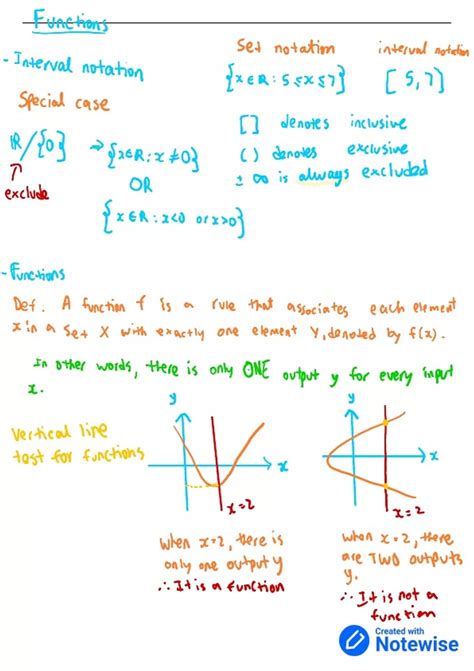 Functions
Set notation
interval notation
- Interval notation
{x∈R: 5≤x≤7}
[5,7]
Special case
[ ] denotes inclusive
R/{0} ⇒ {x∈R: x≠0}
( ) denotes exclusive
OR
± ∞ is always excluded
exclude
{x∈R: x<0 or x>0}
- Functions
Def. A function f is a rule that associates each element
x in a set X with exactly one element Y, denoted by f(x).
In other words, there is only ONE output y for every input
x.
Vertical line
test for functions
y
x
x=2
y
x
x=2
when x=2, there is
only one output y
∴ It is a function
when x=2, there
are TWO outputs
y.
∴ It is not a
function
Created with
Notewise